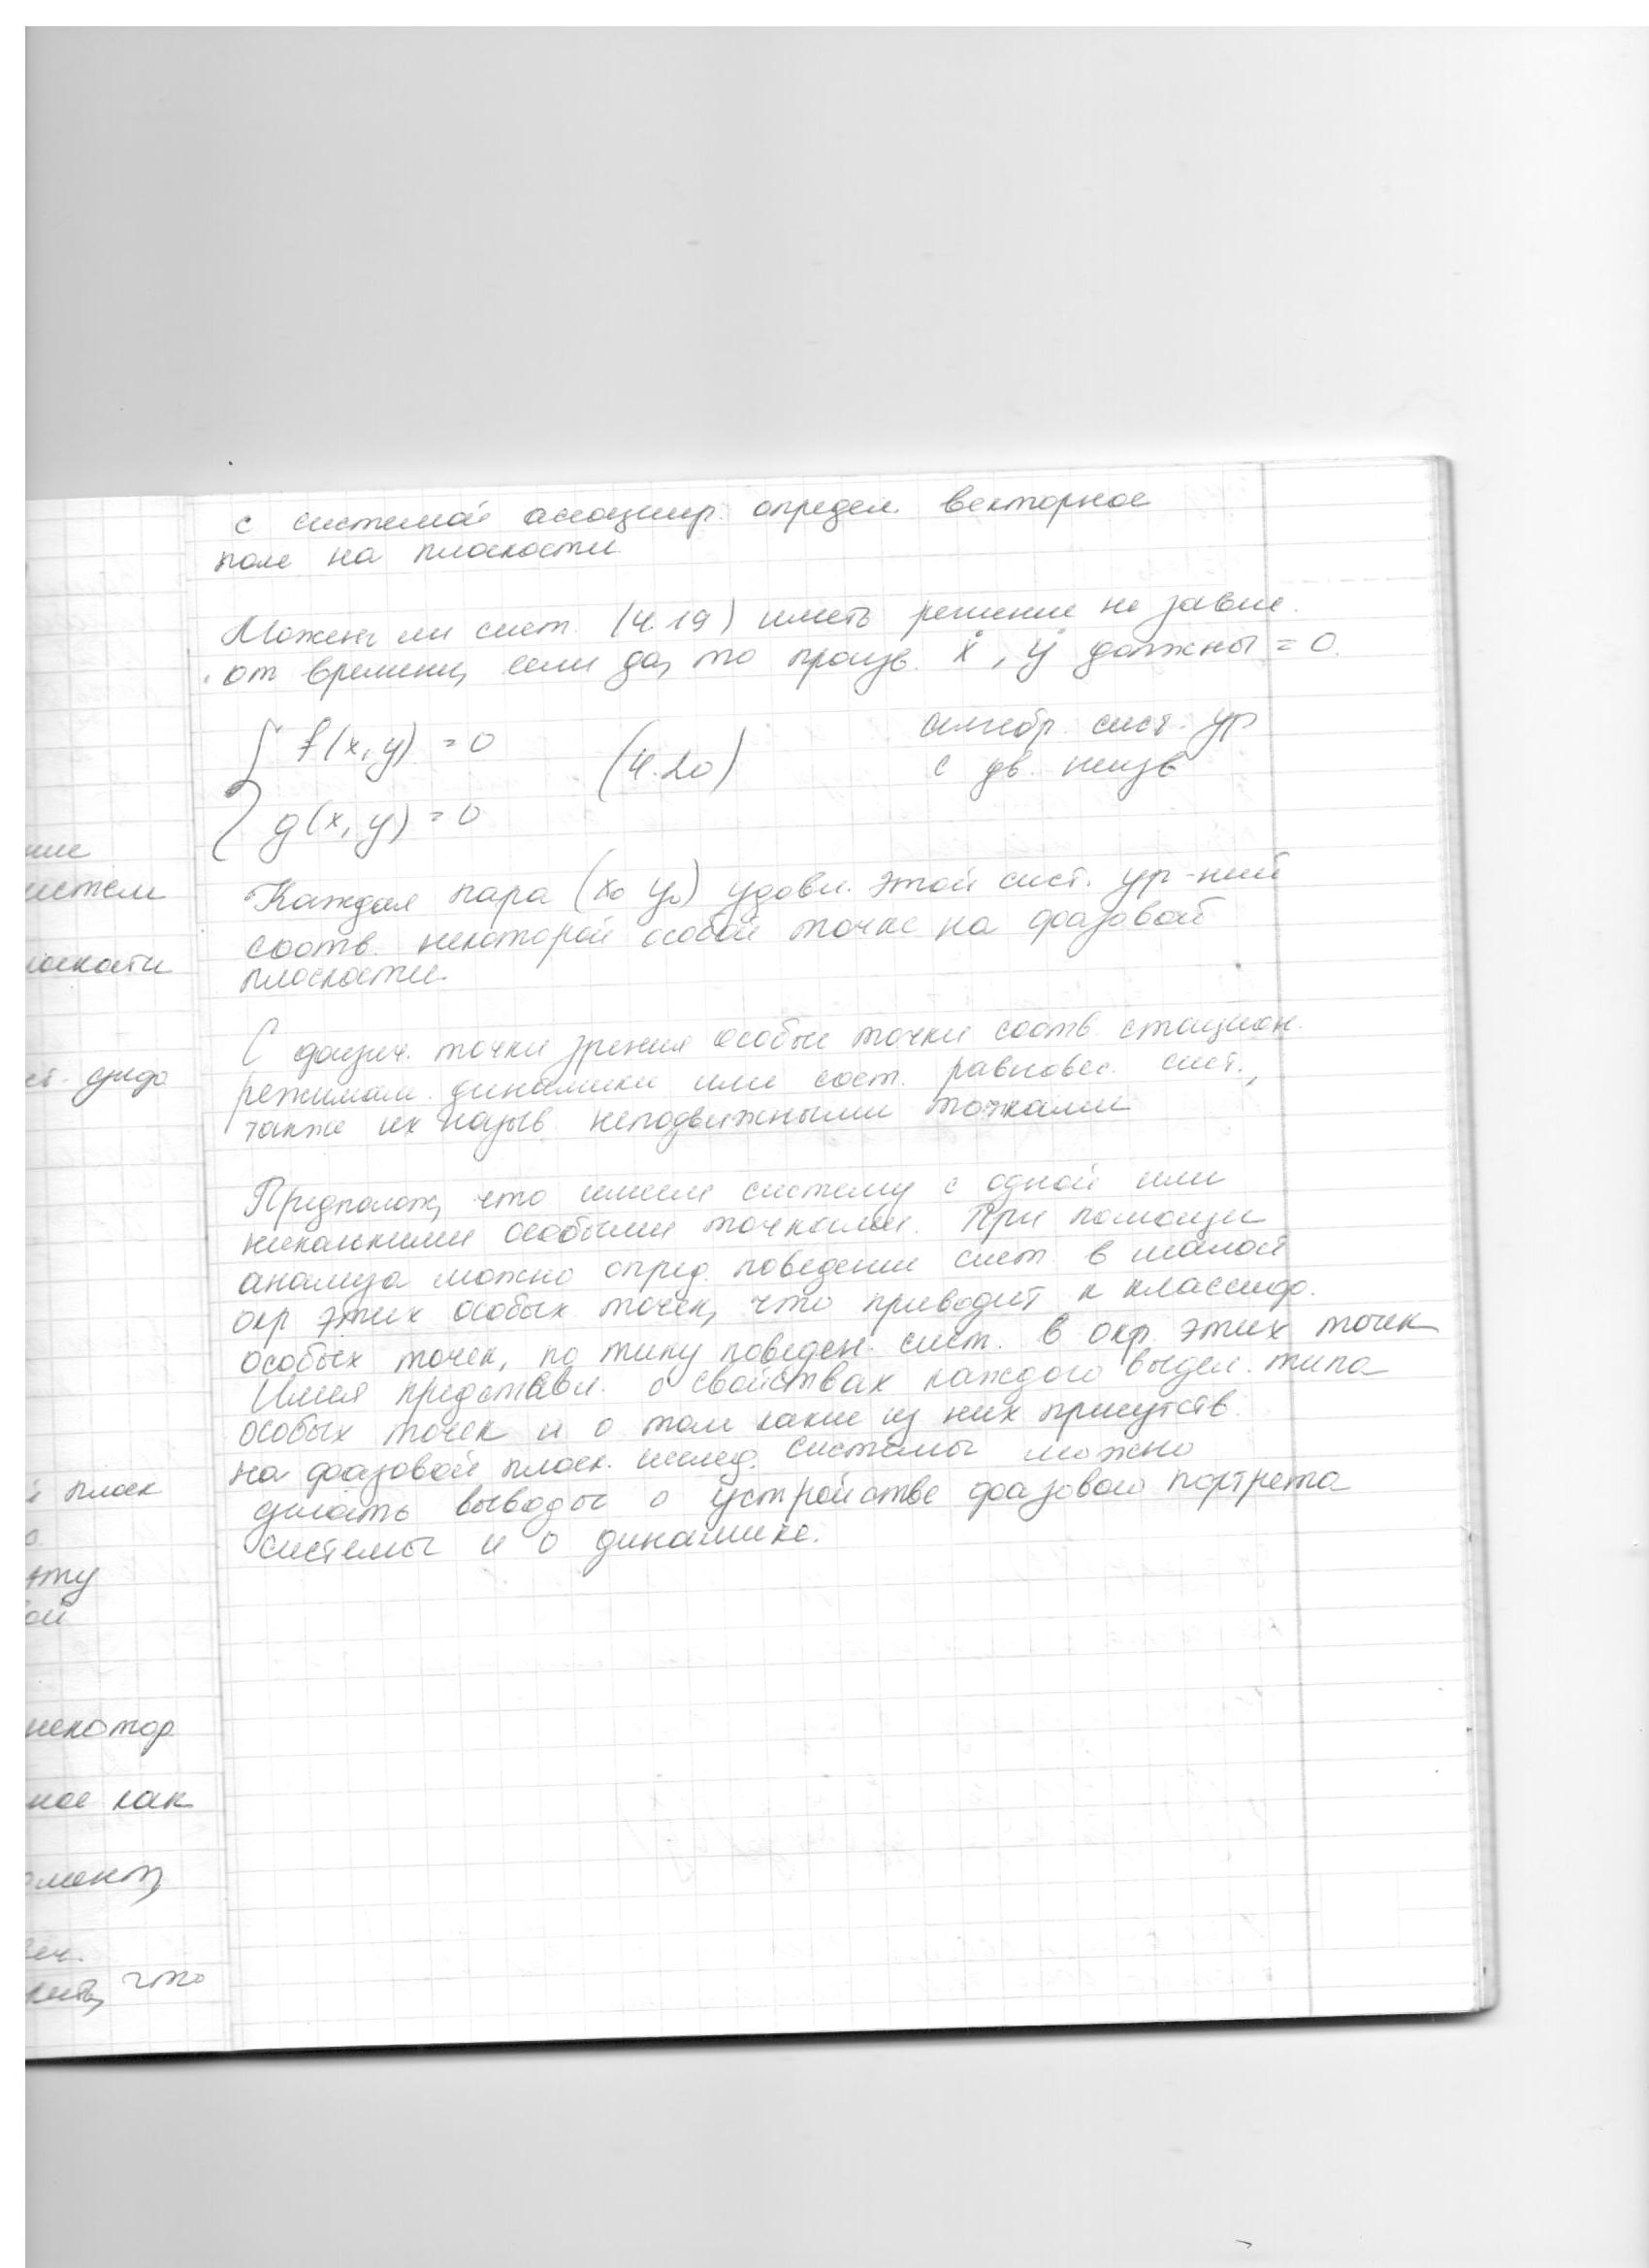 с системой ассоциир. определ. векторное
поле на плоскости.
Может ли сист. (4.19) иметь решение не завис.
от времени, если да, то произв. ẋ, ẏ должны = 0.
{ f(x, y) = 0
(4.20)
алгебр. сист. ур
с дв. неизв
g(x, y) = 0
Каждая пара (x₀ y₀) удовл. этой сист. ур-ний
соотв. некоторой особой точке на фазовой
плоскости.
С физич. точки зрения особые точки соотв. стацион.
режимам динамики или сост. равновес. сист.,
также их назыв. неподвижными точками
Предполож, что имеем систему с одной или
несколькими особыми точками. При помощи
анализа можно опред. поведение сист. в малой
окр этих особых точек, что приводит к классиф.
особых точек, по типу поведен. сист. в окр. этих точек
Имея представл. о свойствах каждого выдел. типа
особых точек и о том какие из них присутств.
на фазовой плоск. исслед. системы можно
делать выводы о устройстве фазового портрета
системы и о динамике.
ние
истем
лоскости
ст. дифф
й плоск
о.
нту
ой
некотор
ное как
омент,
чить, что